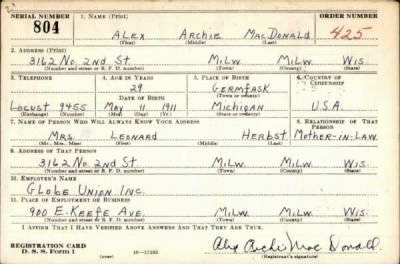 SERIAL NUMBER 1. NAME (Print) ORDER NUMBER
804 ALEX ARCHIE MACDONALD 425
(First) (Middle) (Last)
2. ADDRESS (Print)
3162 No. 2nd St MILW. MILW. WIS.
(Number and street or R. F. D. number) (Town) (County) (State)
3. TELEPHONE 4. AGE IN YEARS 5. PLACE OF BIRTH 6. COUNTRY OF CITIZENSHIP
29 GERMFASK
DATE OF BIRTH (Town or county)
LOCUST 9455 MAY 11 1911 MICHIGAN U.S.A.
(Exchange) (Number) (Mo.) (Day) (Yr.) (State or country)
7. NAME OF PERSON WHO WILL ALWAYS KNOW YOUR ADDRESS 8. RELATIONSHIP OF THAT PERSON
MRS. LEONARD HERBST MOTHER-IN-LAW
(Mr., Mrs., Miss) (First) (Middle) (Last)
9. ADDRESS OF THAT PERSON
3162 No. 2nd St MILW. MILW. WIS.
(Number and street or R. F. D. number) (Town) (County) (State)
10. EMPLOYER'S NAME
GLOBE UNION INC.
11. PLACE OF EMPLOYMENT OR BUSINESS
900 E. KEEFE AVE. MILW. MILW. WIS.
(Number and street or R. F. D. number) (Town) (County) (State)
I AFFIRM THAT I HAVE VERIFIED ABOVE ANSWERS AND THAT THEY ARE TRUE.
REGISTRATION CARD
D. S. S. Form 1 Alex Archie MacDonald
(Registrant's signature)